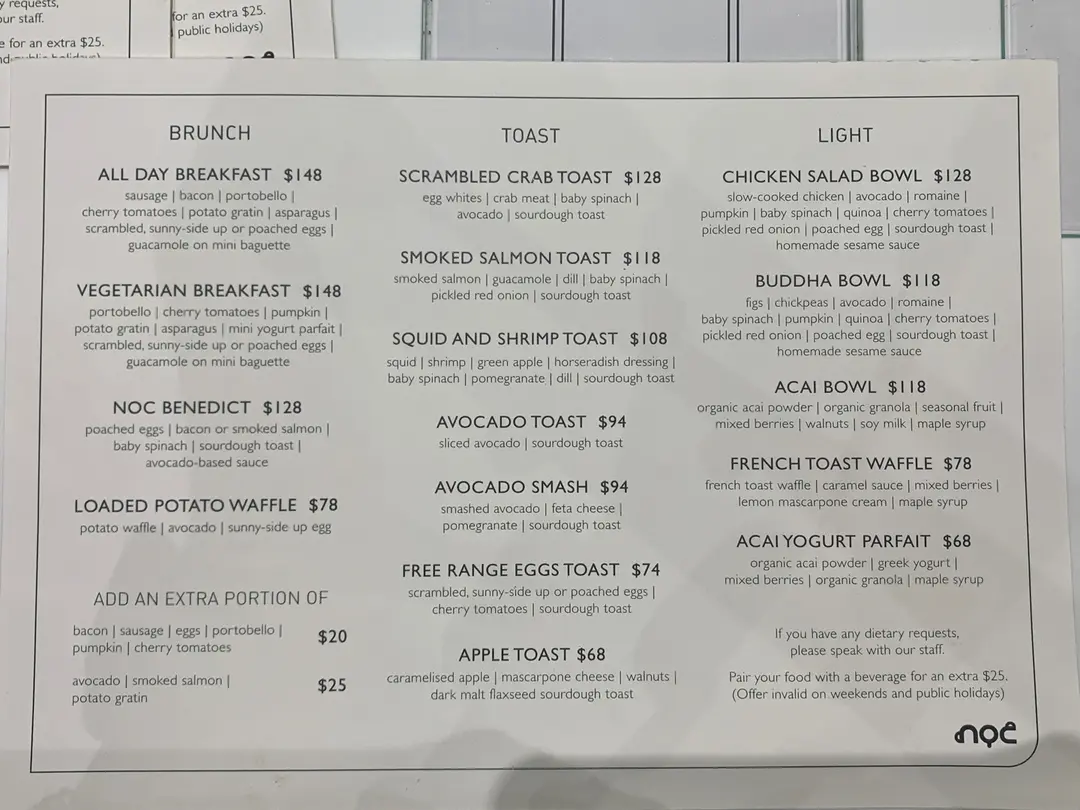 y requests,
our staff.
e for an extra $25.
for an extra $25.
public holidays)
BRUNCH
ALL DAY BREAKFAST $148
sausage | bacon | portobello |
cherry tomatoes | potato gratin | asparagus |
scrambled, sunny-side up or poached eggs |
guacamole on mini baguette
VEGETARIAN BREAKFAST $148
portobello | cherry tomatoes | pumpkin |
potato gratin | asparagus | mini yogurt parfait |
scrambled, sunny-side up or poached eggs |
guacamole on mini baguette
NOC BENEDICT $128
poached eggs | bacon or smoked salmon |
baby spinach | sourdough toast |
avocado-based sauce
LOADED POTATO WAFFLE $78
potato waffle | avocado | sunny-side up egg
ADD AN EXTRA PORTION OF
bacon | sausage | eggs | portobello |
pumpkin | cherry tomatoes
$20
avocado | smoked salmon |
potato gratin
$25
TOAST
SCRAMBLED CRAB TOAST $128
egg whites | crab meat | baby spinach |
avocado | sourdough toast
SMOKED SALMON TOAST $118
smoked salmon | guacamole | dill | baby spinach |
pickled red onion | sourdough toast
SQUID AND SHRIMP TOAST $108
squid | shrimp | green apple | horseradish dressing |
baby spinach | pomegranate | dill | sourdough toast
AVOCADO TOAST $94
sliced avocado | sourdough toast
AVOCADO SMASH $94
smashed avocado | feta cheese |
pomegranate | sourdough toast
FREE RANGE EGGS TOAST $74
scrambled, sunny-side up or poached eggs |
cherry tomatoes | sourdough toast
APPLE TOAST $68
caramelised apple | mascarpone cheese | walnuts |
dark malt flaxseed sourdough toast
LIGHT
CHICKEN SALAD BOWL $128
slow-cooked chicken | avocado | romaine |
pumpkin | baby spinach | quinoa | cherry tomatoes |
pickled red onion | poached egg | sourdough toast |
homemade sesame sauce
BUDDHA BOWL $118
figs | chickpeas | avocado | romaine |
baby spinach | pumpkin | quinoa | cherry tomatoes |
pickled red onion | poached egg | sourdough toast |
homemade sesame sauce
ACAI BOWL $118
organic acai powder | organic granola | seasonal fruit |
mixed berries | walnuts | soy milk | maple syrup
FRENCH TOAST WAFFLE $78
french toast waffle | caramel sauce | mixed berries |
lemon mascarpone cream | maple syrup
ACAI YOGURT PARFAIT $68
organic acai powder | greek yogurt |
mixed berries | organic granola | maple syrup
If you have any dietary requests,
please speak with our staff.
Pair your food with a beverage for an extra $25.
(Offer invalid on weekends and public holidays)
noc